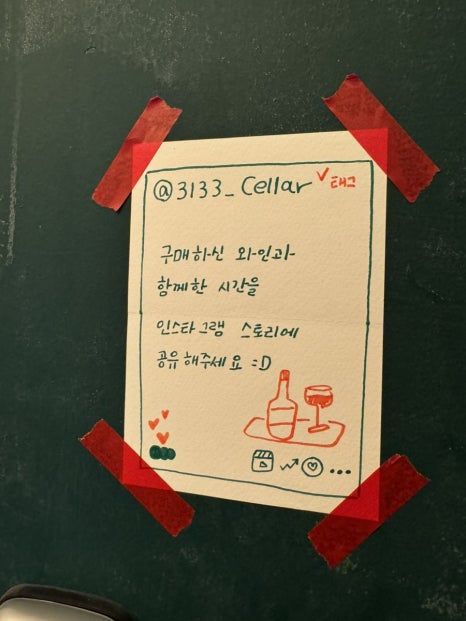 @3133_Cellar 태그
구매하신 와인과
함께한 시간을
인스타그램 스토리에
공유해주세요 :D